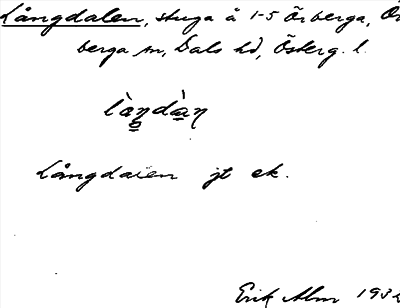 Långdalen, stuga å 1-5 Örberga, Ör
berga sn, Dals hd, Österg. l.
làŋdàn
Långdalen jt ek.
Erik Alm 193